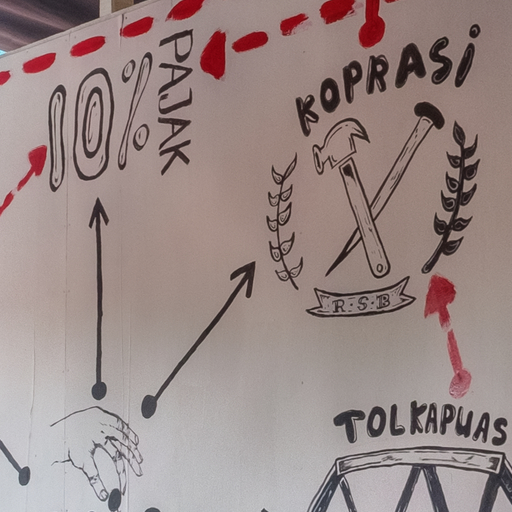 10% PAJAK
KOPRASi
R·S·B
TOLKAPUAS